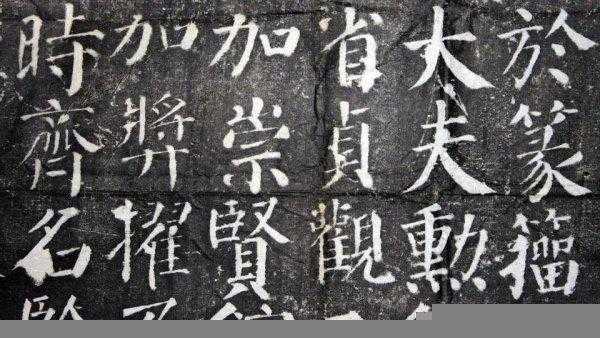 於篆籀
大夫勲
省貞觀
加崇賢
加奬擢
時齊名